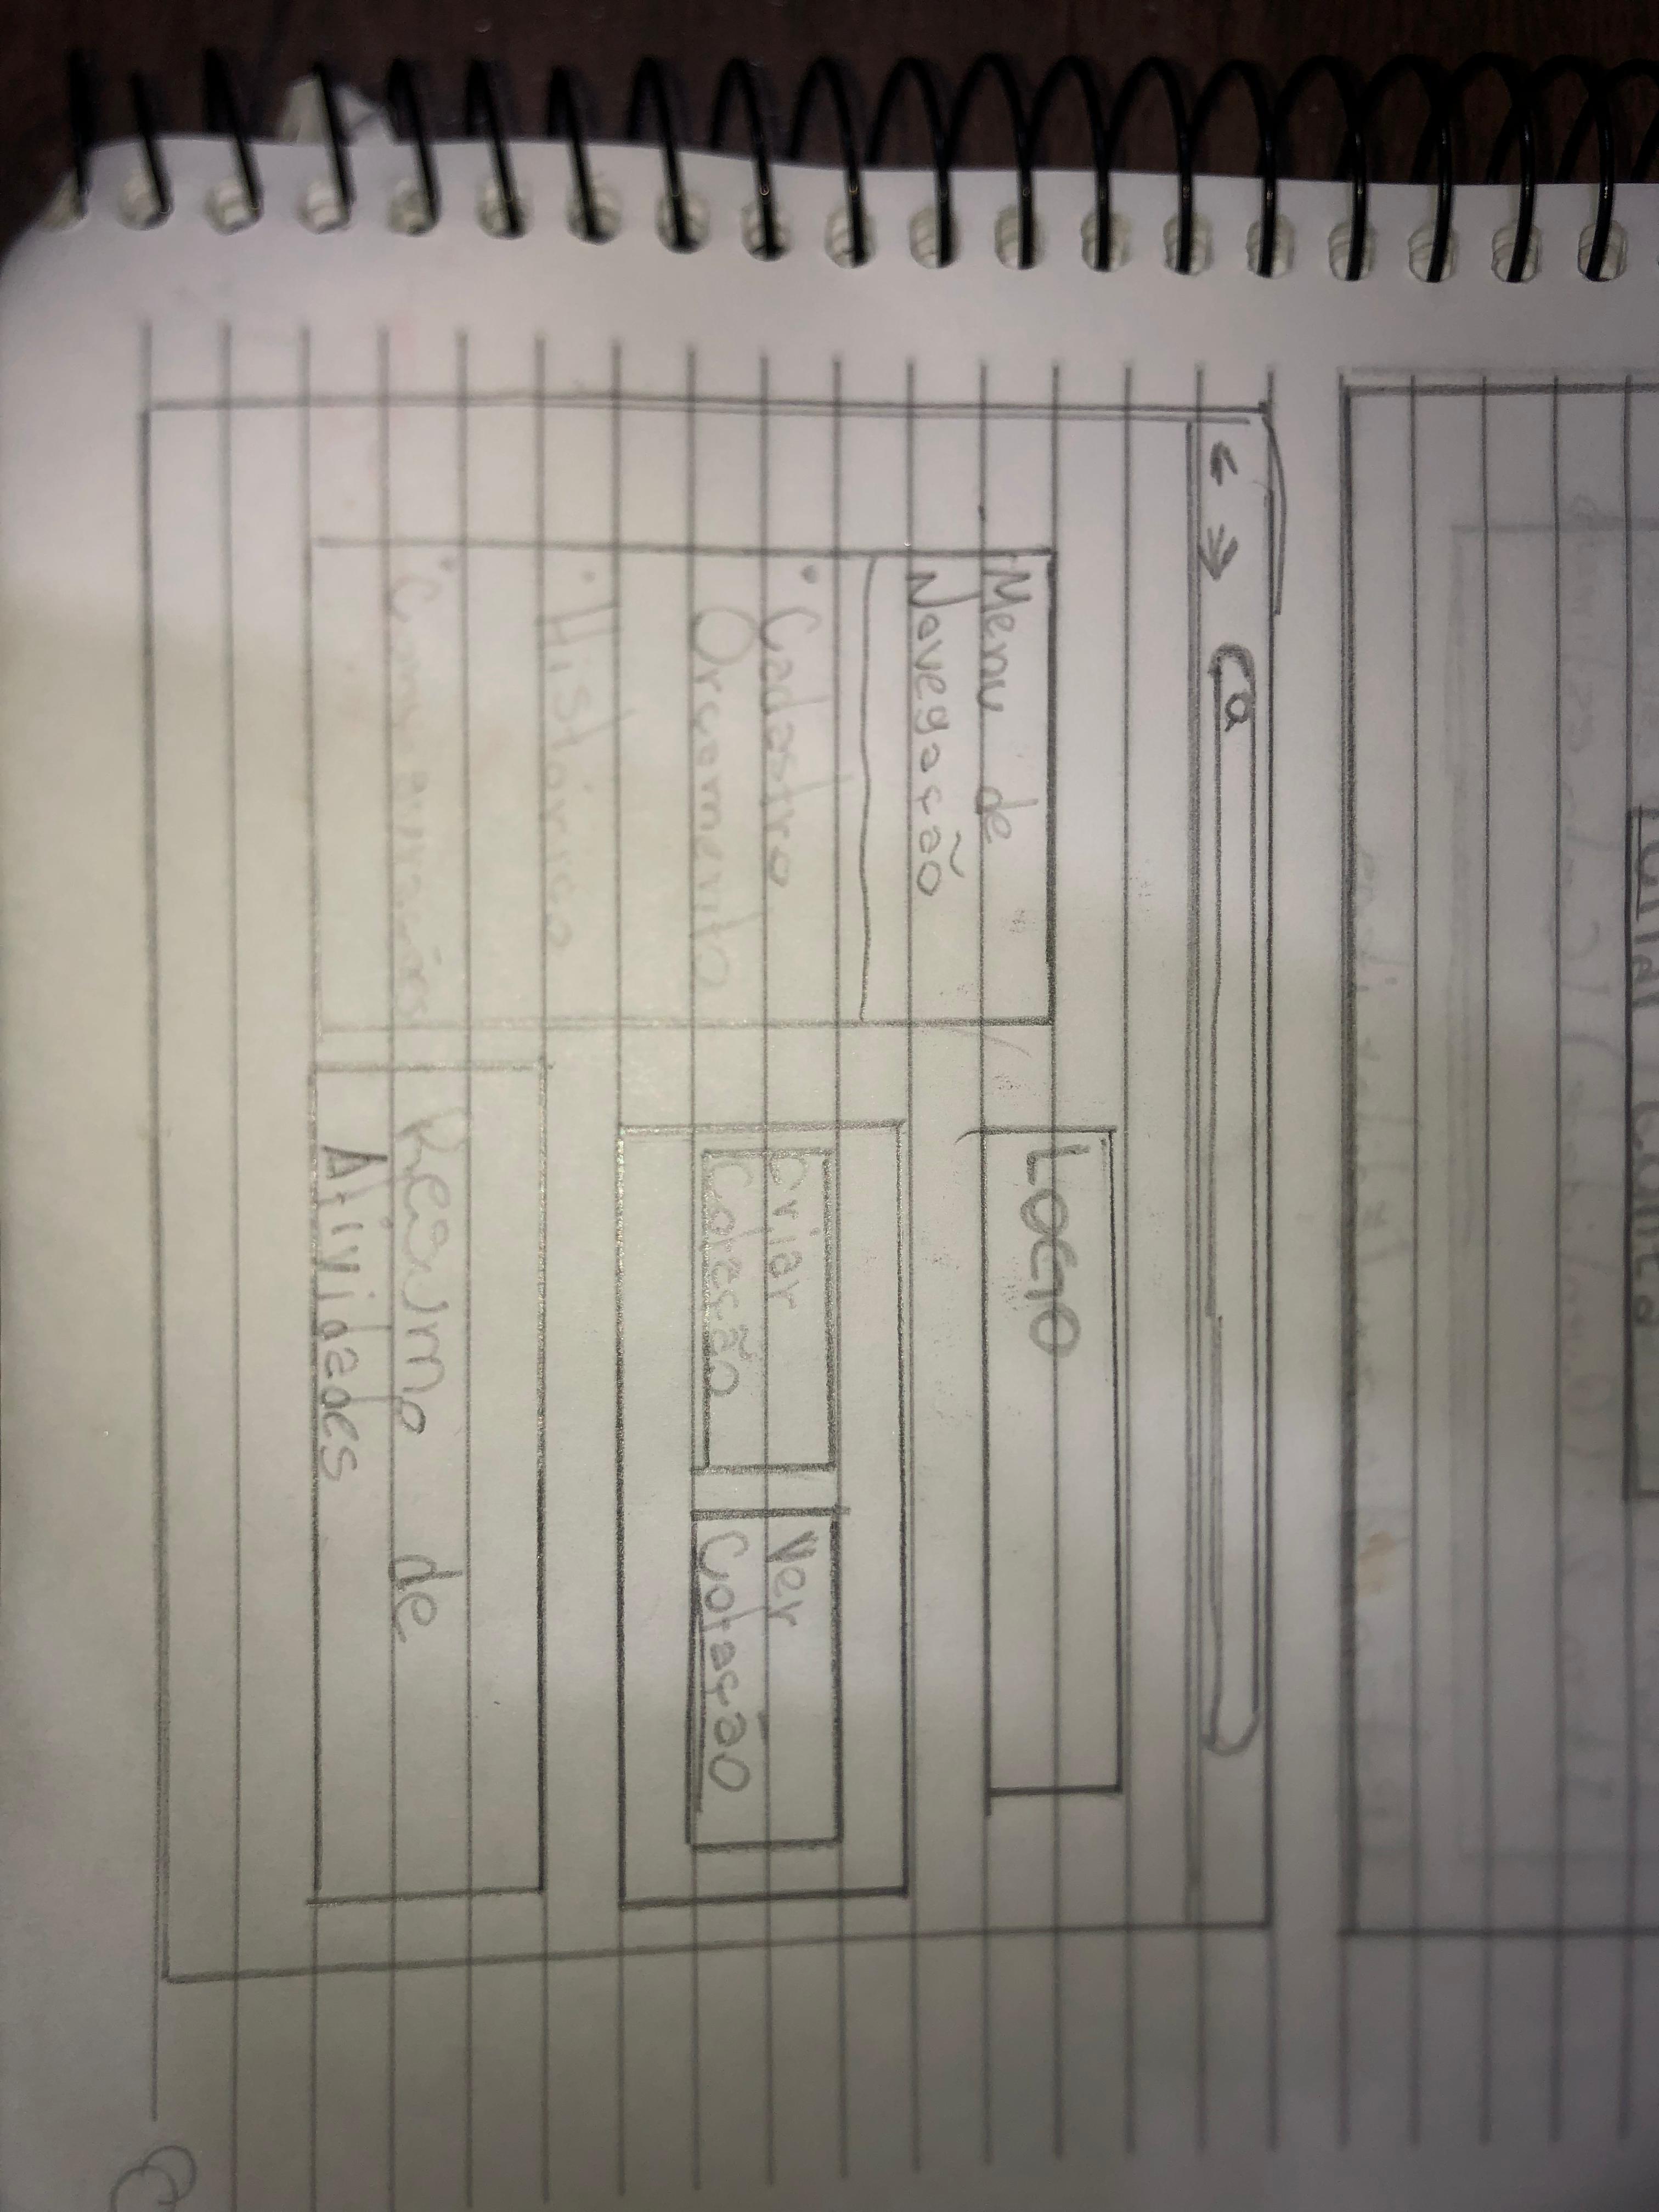 Criar Conta
LOGO
Menu de
Navegação
• Cadastro
Orçamento
• Histórico
• Configurações
Criar
Cotação
Ver
Cotação
Resumo de
Atividades